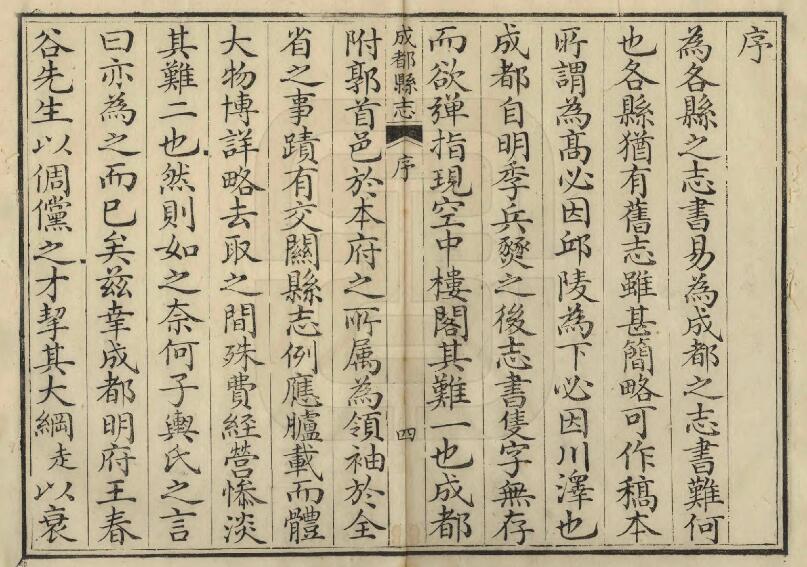 序
為各縣之志書易為成都之志書難何
也各縣猶有舊志雖甚簡略可作稿本
所謂為髙必因邱陵為下必因川澤也
成都自明季兵燹之後志書隻字無存
而欲彈指現空中樓閣其難一也成都
成都縣志
序
四
附郭首邑於本府之所属為領袖於全
省之事蹟有交關縣志例應臚載而體
大物博詳略去取之間殊費經營慘淡
其難二也然則如之奈何子輿氏之言
曰亦為之而已矣茲幸成都明府王春
谷先生以倜儻之才挈其大綱走以衰